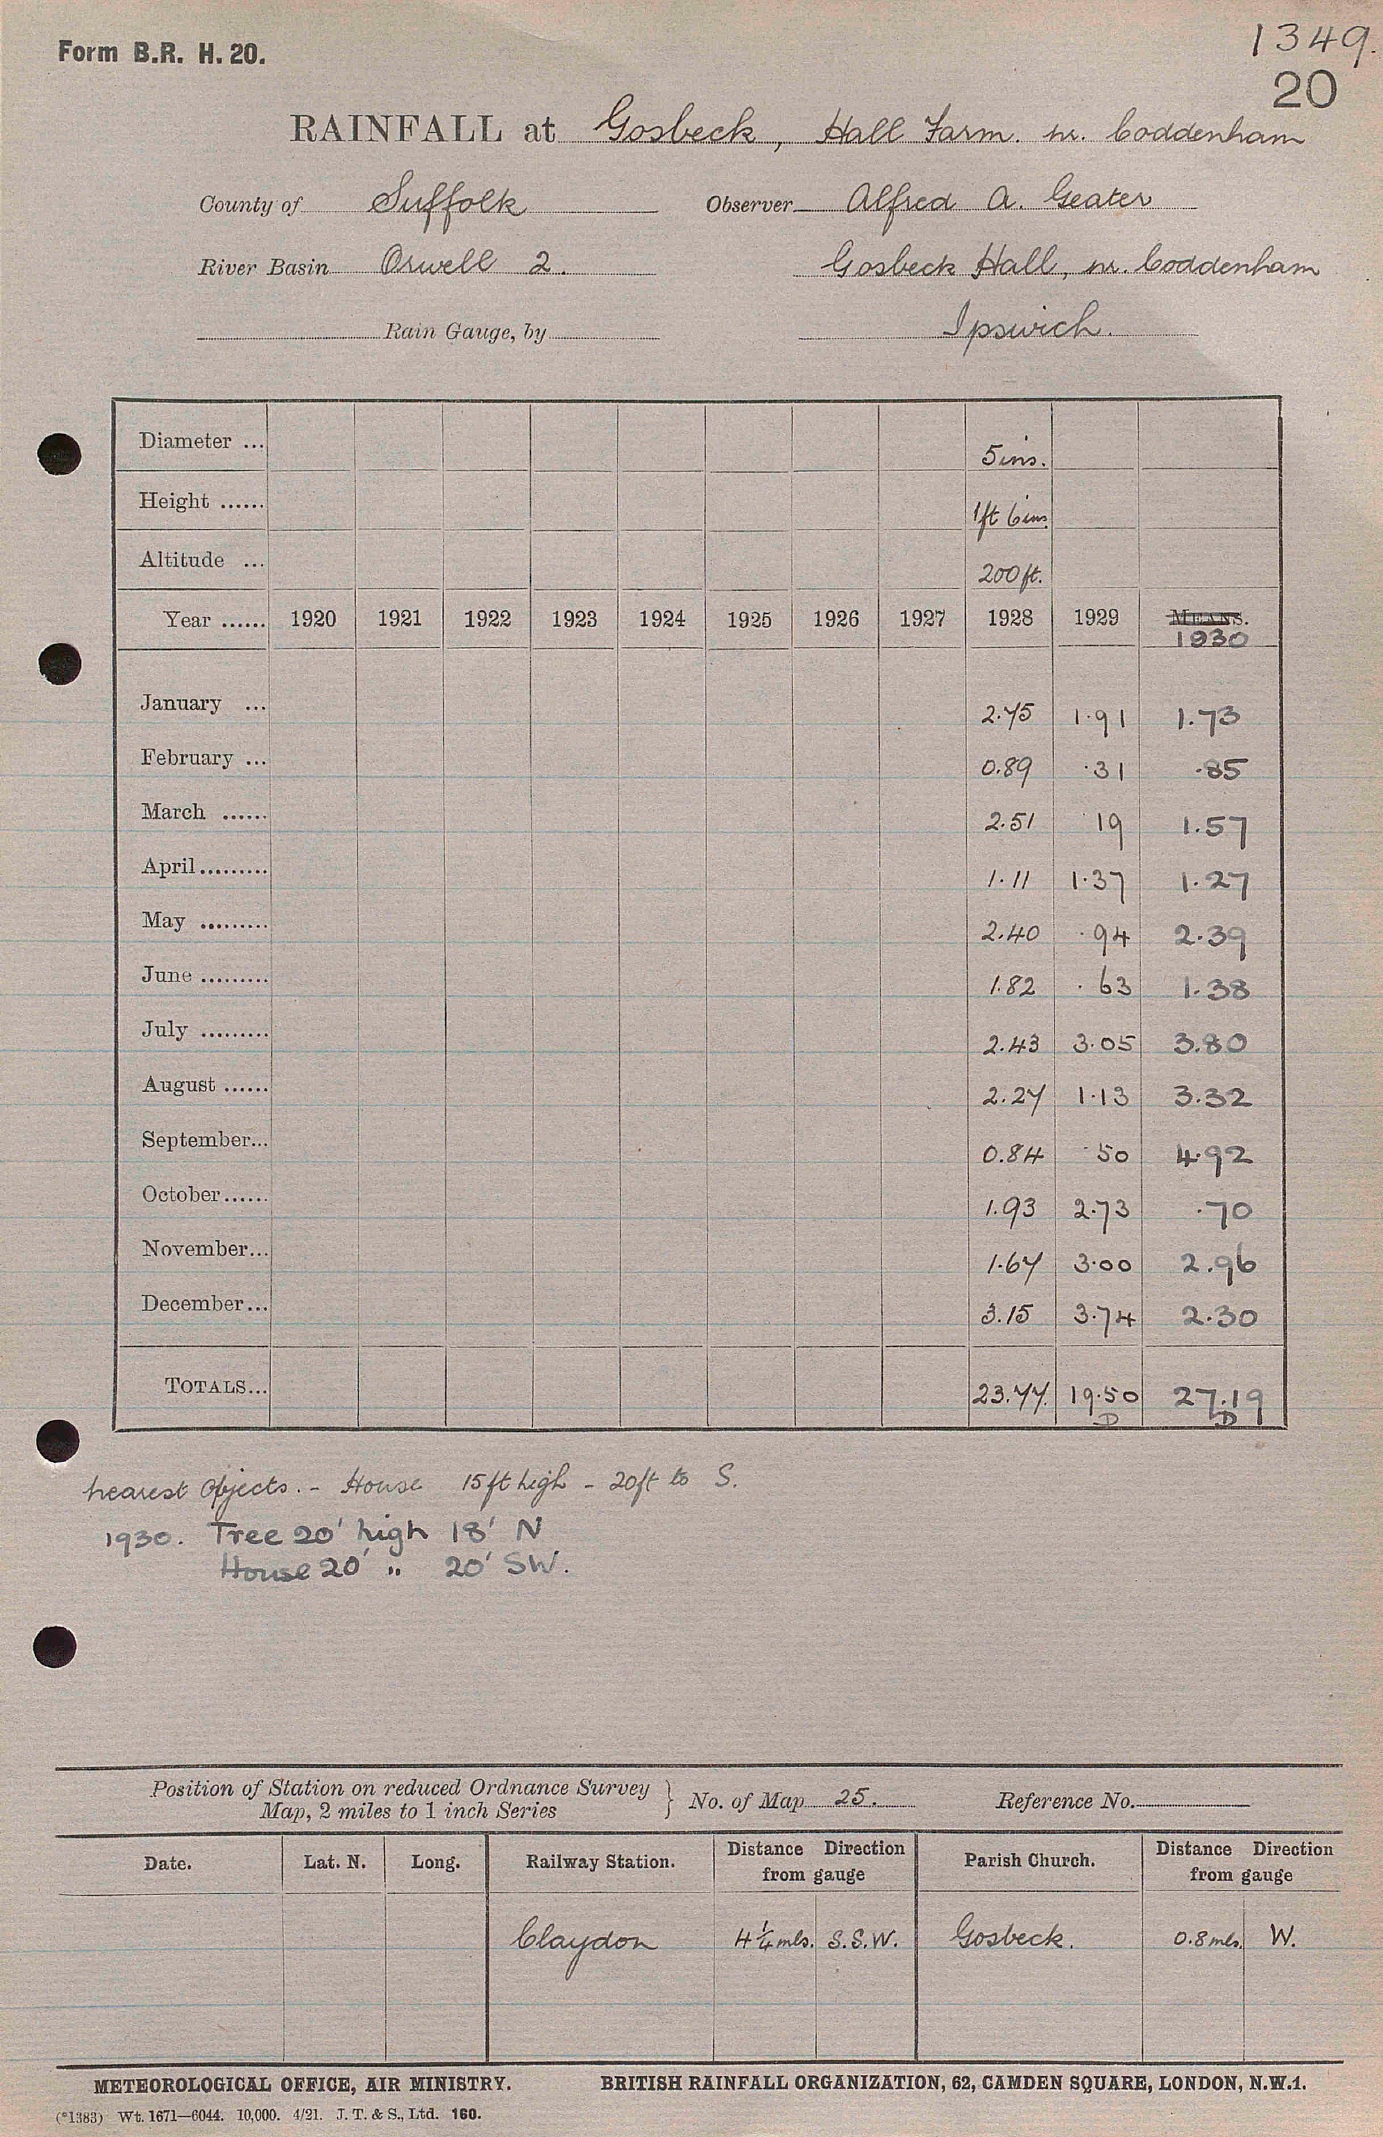 Form B.R. H. 20.
1349.
20
RAINFALL at Gosbeck, Hall Farm. nr. Coddenham
County of Suffolk Observer Alfred A. Geater
River Basin Orwell 2. Gosbeck Hall, nr. Coddenham
Rain Gauge, by Ipswich.
Diameter ... 5ins.
Height ...... 1ft 6ins
Altitude ... 200ft.
Year ...... 1920 1921 1922 1923 1924 1925 1926 1927 1928 1929 MEANS. 1930
January ... 2.75 1.91 1.73
February ... 0.89 .31 .85
March ...... 2.51 19 1.57
April......... 1.11 1.37 1.27
May ......... 2.40 .94 2.39
June ......... 1.82 .63 1.38
July ......... 2.43 3.05 3.80
August ...... 2.27 1.13 3.32
September... 0.84 .50 4.92
October...... 1.93 2.73 .70
November... 1.67 3.00 2.96
December... 3.15 3.74 2.30
TOTALS... 23.77. 19.50 27.19
D D
nearest objects. - House 15ft high - 20ft to S.
1930. Tree 20' high 18' N
House 20' " 20' SW.
Position of Station on reduced Ordnance Survey Map, 2 miles to 1 inch Series } No. of Map 25. Reference No.
Date. Lat. N. Long. Railway Station. Distance Direction from gauge Parish Church. Distance Direction from gauge
Claydon 4¼ mls. S.S.W. Gosbeck. 0.8 mls. W.
METEOROLOGICAL OFFICE, AIR MINISTRY. BRITISH RAINFALL ORGANIZATION, 62, CAMDEN SQUARE, LONDON, N.W.1.
(*1383) Wt. 1671—6044. 10,000. 4/21. J. T. & S., Ltd. 160.